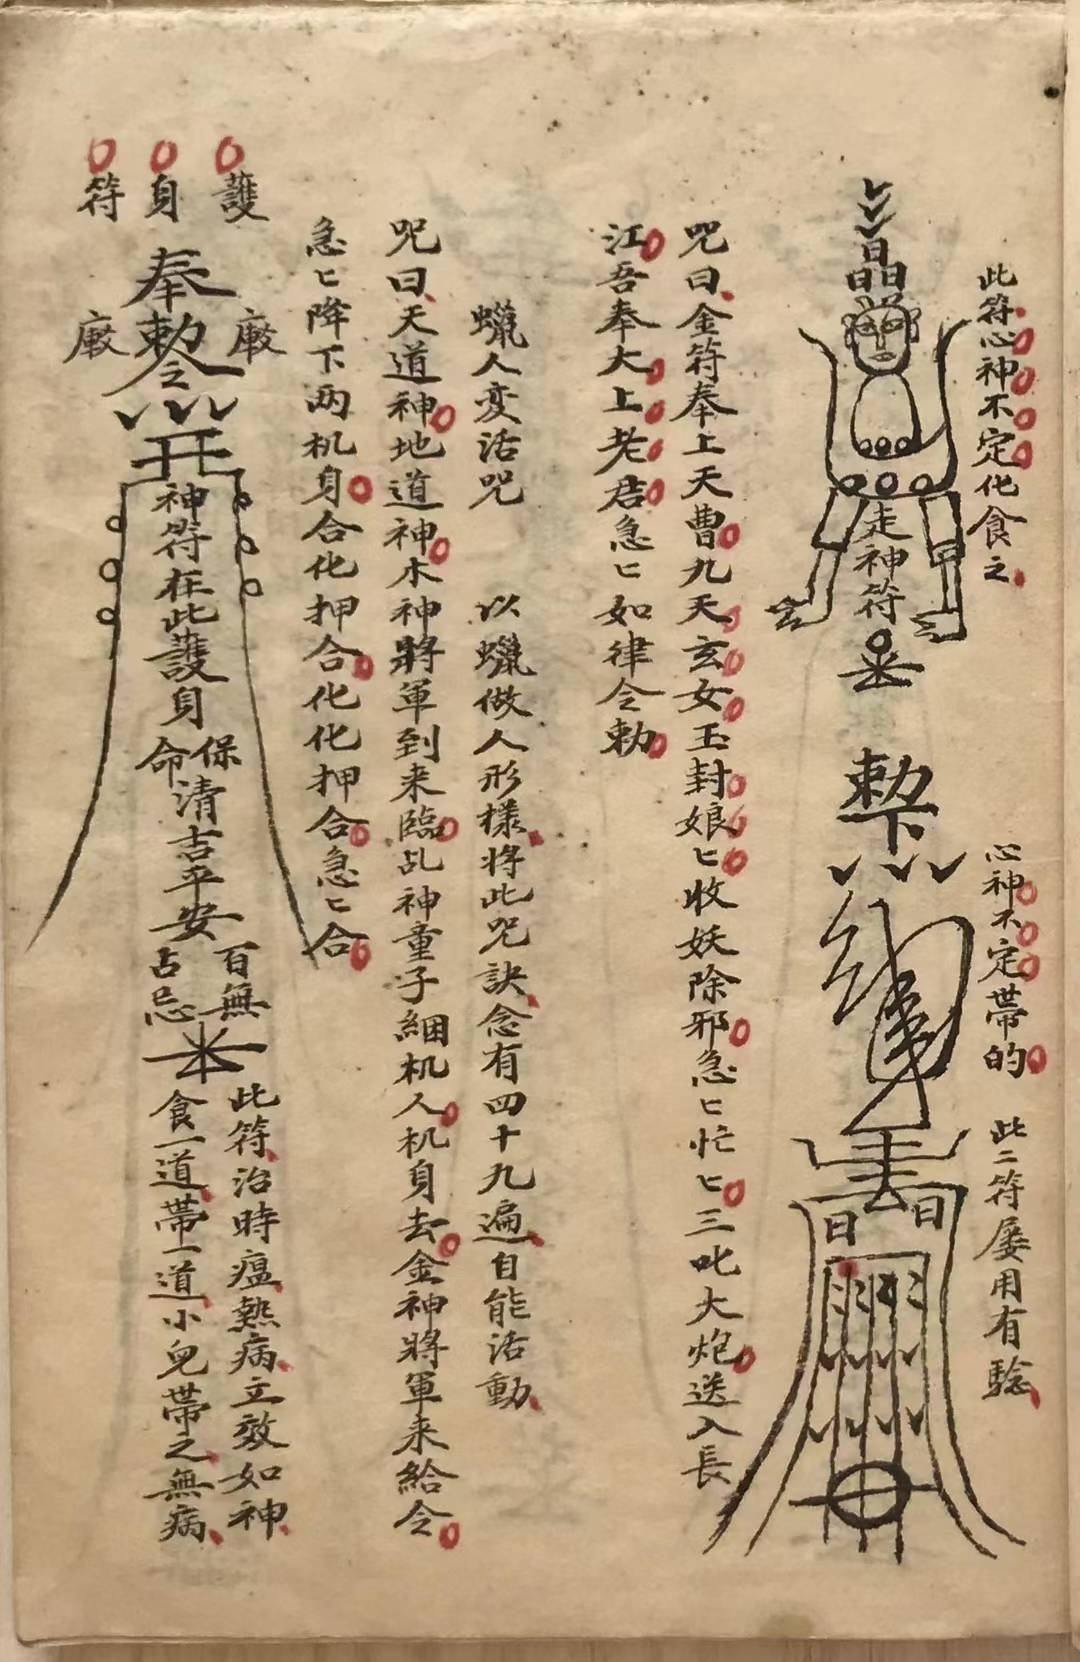 此符心神不定化食之
心神不定帶的
此二符屡用有驗
晶
走神符
勅下
日日
咒曰金符奉上天曹九天玄女玉封娘匕收妖除邪急匕忙匕三叱大炮送入長
江吾奉大上老君急匕如律令勅
蠟人変活咒
以蠟做人形樣将此咒訣念有四十九遍自能活動
咒曰天道神地道神木神將軍到来臨乩神童子綑机人机身去金神將軍来給令
急匕降下两机身合化押合化化押合急匕合
護身符
奉勅令
神符在此護身
保命
清吉平安
百無占忌
此符治時瘟熱病立效如神
食一道帶一道小皃帶之無病